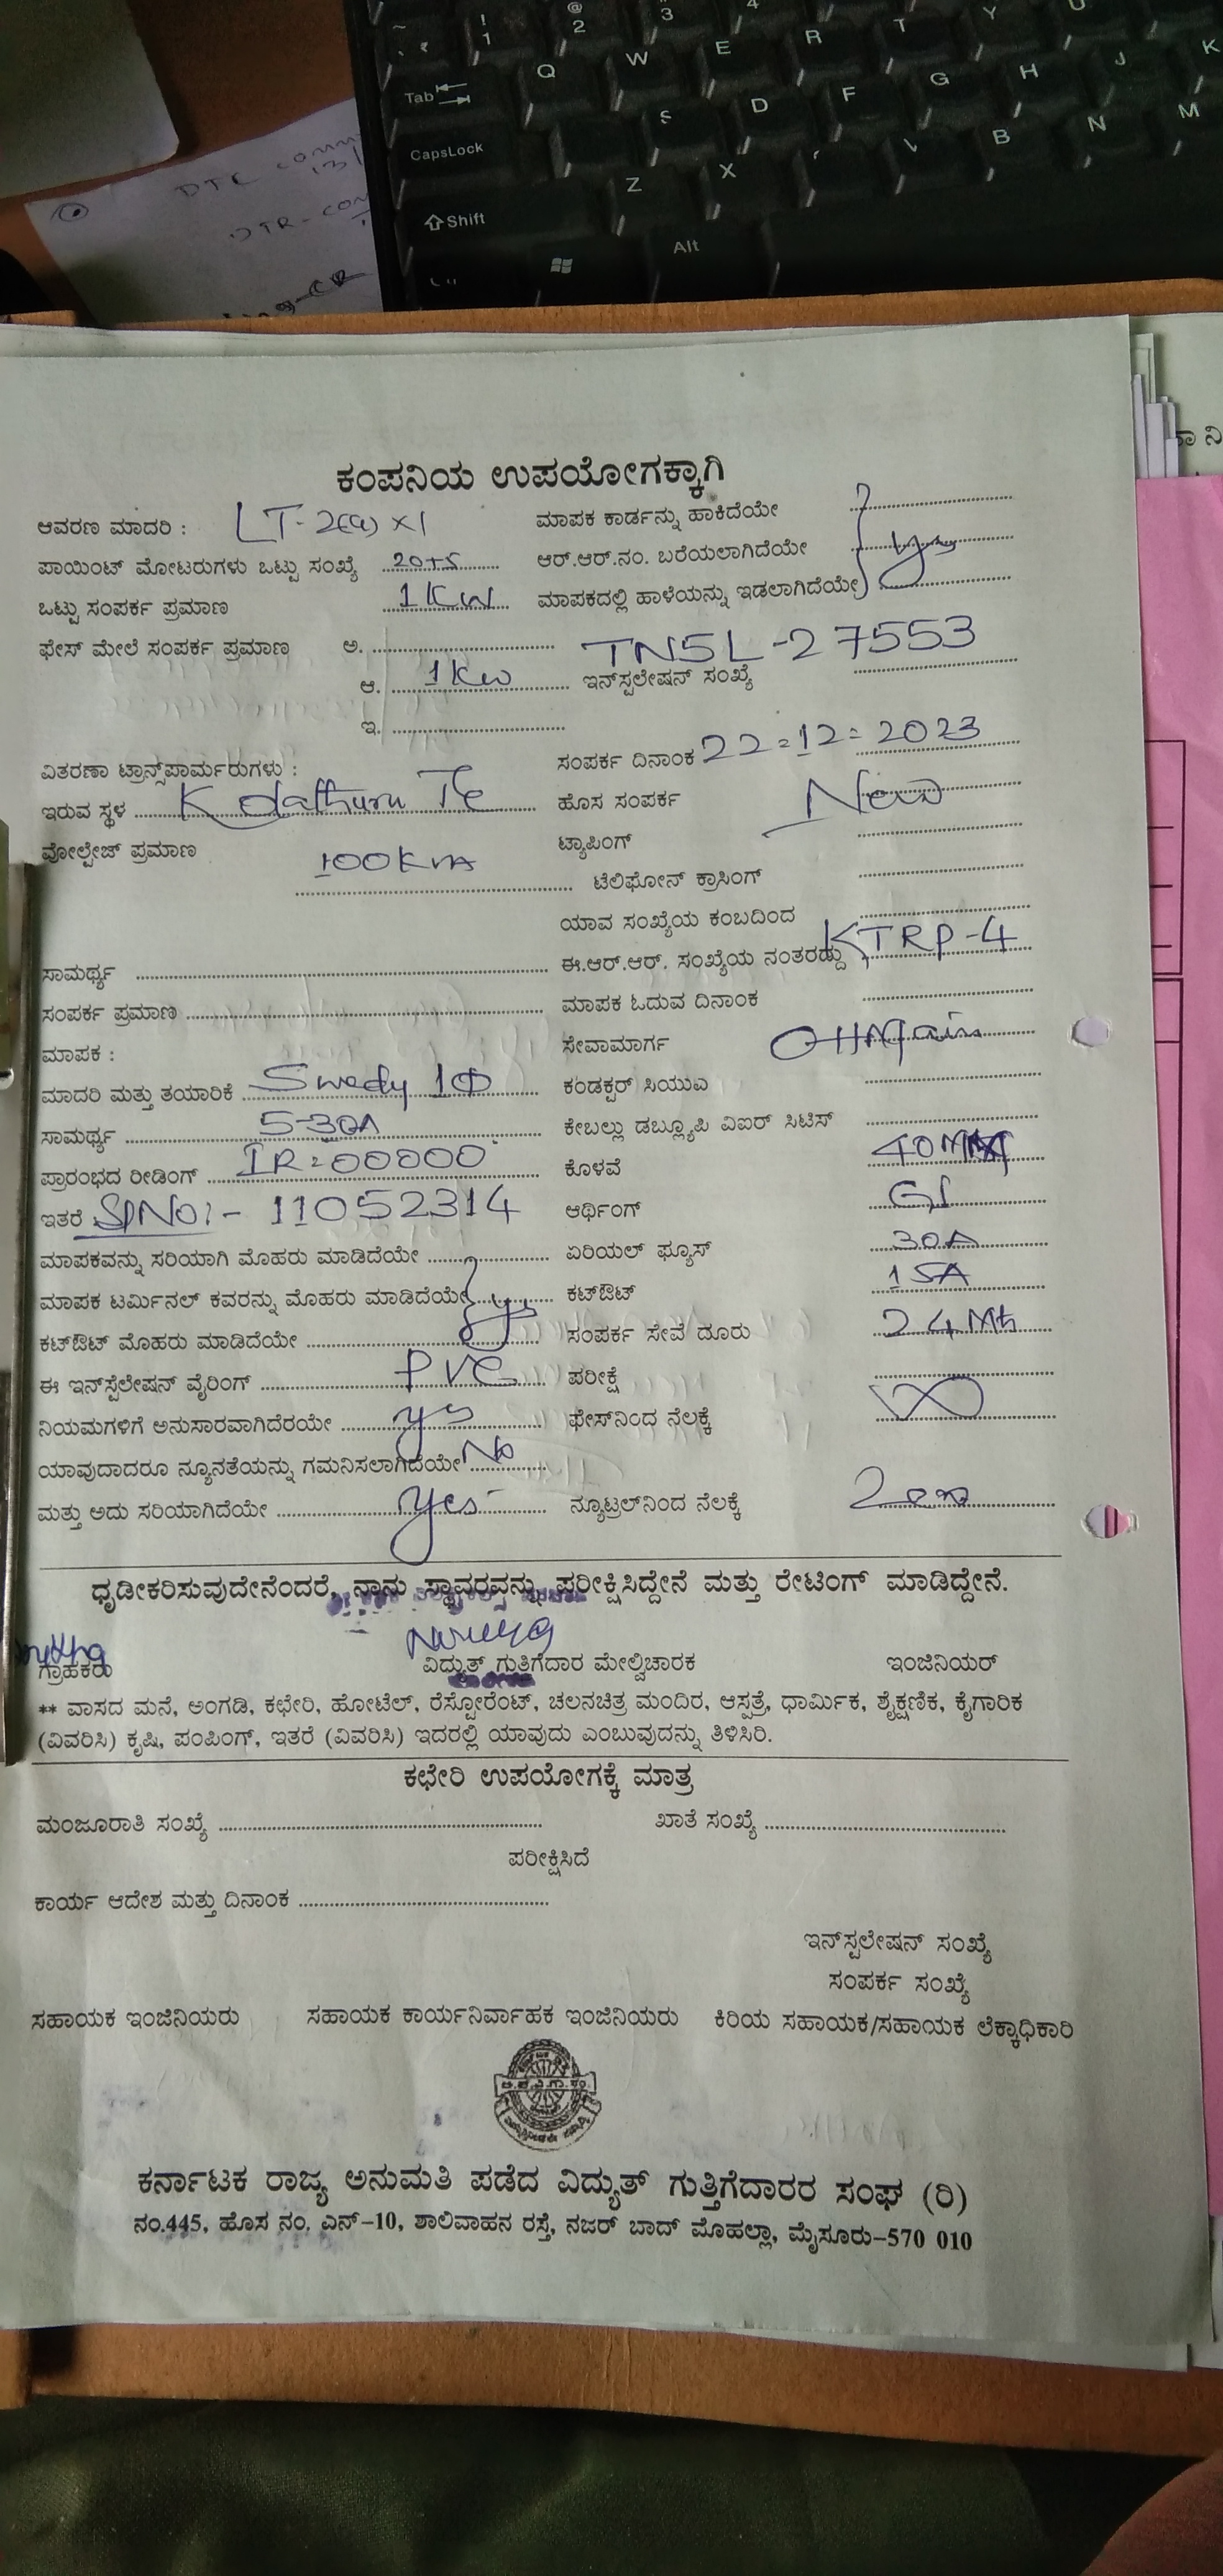 ~ ! 1 @ 2 3 4
Tab Q W E R T Y U
CapsLock S D F G H J K
Shift Z X B N M
Alt
DTC
DTR-
ಕಂಪನಿಯ ಉಪಯೋಗಕ್ಕಾಗಿ
ಆವರಣ ಮಾದರಿ : LT-2(a) x1 ಮಾಪಕ ಕಾರ್ಡನ್ನು ಹಾಕಿದೆಯೇ
ಪಾಯಿಂಟ್ ಮೋಟರುಗಳು ಒಟ್ಟು ಸಂಖ್ಯೆ ಆರ್.ಆರ್.ನಂ. ಬರೆಯಲಾಗಿದೆಯೇ yes
ಒಟ್ಟು ಸಂಪರ್ಕ ಪ್ರಮಾಣ 1Kw ಮಾಪಕದಲ್ಲಿ ಹಾಳೆಯನ್ನು ಇಡಲಾಗಿದೆಯೇ
ಫೇಸ್ ಮೇಲೆ ಸಂಪರ್ಕ ಪ್ರಮಾಣ ಅ. TNSL-27553
ಆ. 1Kw ಇನ್‌ಸ್ಟಲೇಷನ್ ಸಂಖ್ಯೆ
ಇ.
ವಿತರಣಾ ಟ್ರಾನ್ಸ್‌ಪಾರ್ಮರುಗಳು : ಸಂಪರ್ಕ ದಿನಾಂಕ 22-12-2023
ಇರುವ ಸ್ಥಳ Kolathuru Tc ಹೊಸ ಸಂಪರ್ಕ New
ವೋಲ್ಟೇಜ್ ಪ್ರಮಾಣ 100KVA ಟ್ಯಾಪಿಂಗ್
ಟೆಲಿಫೋನ್ ಕ್ರಾಸಿಂಗ್
ಯಾವ ಸಂಖ್ಯೆಯ ಕಂಬದಿಂದ
ಸಾಮರ್ಥ್ಯ ಈ.ಆರ್.ಆರ್. ಸಂಖ್ಯೆಯ ನಂತರದ್ದು KTRP-4
ಸಂಪರ್ಕ ಪ್ರಮಾಣ ಮಾಪಕ ಓದುವ ದಿನಾಂಕ
ಮಾಪಕ : ಸೇವಾಮಾರ್ಗ
ಮಾದರಿ ಮತ್ತು ತಯಾರಿಕೆ 1Φ ಕಂಡಕ್ಟರ್ ಸಿಯುಎ
ಸಾಮರ್ಥ್ಯ 5-30A ಕೇಬಲ್ಲು ಡಬ್ಲ್ಯೂಪಿ ವಿಐರ್ ಸಿಟಿಸ್
ಪ್ರಾರಂಭದ ರೀಡಿಂಗ್ IR=00000 ಕೊಳವೆ
ಇತರೆ Sl No:- 11052314 ಆರ್ಥಿಂಗ್ GI
ಮಾಪಕವನ್ನು ಸರಿಯಾಗಿ ಮೊಹರು ಮಾಡಿದೆಯೇ ಏರಿಯಲ್ ಫ್ಯೂಸ್ 30A
ಮಾಪಕ ಟರ್ಮಿನಲ್ ಕವರನ್ನು ಮೊಹರು ಮಾಡಿದೆಯೇ yes ಕಟ್‌ಔಟ್ 15A
ಕಟ್‌ಔಟ್ ಮೊಹರು ಮಾಡಿದೆಯೇ ಸಂಪರ್ಕ ಸೇವೆ ದೂರು 24Mts
ಈ ಇನ್‌ಸ್ಟಲೇಷನ್ ವೈರಿಂಗ್ PVC ಪರೀಕ್ಷೆ
ನಿಯಮಗಳಿಗೆ ಅನುಸಾರವಾಗಿದೆರಯೇ yes ಫೇಸ್‌ನಿಂದ ನೆಲಕ್ಕೆ ∞
ಯಾವುದಾದರೂ ನ್ಯೂನತೆಯನ್ನು ಗಮನಿಸಲಾಗಿದೆಯೇ No
ಮತ್ತು ಅದು ಸರಿಯಾಗಿದೆಯೇ yes ನ್ಯೂಟ್ರಲ್‌ನಿಂದ ನೆಲಕ್ಕೆ Zero
ಧೃಡೀಕರಿಸುವುದೇನೆಂದರೆ, ನಾನು ಸ್ಥಾವರವನ್ನು ಪರೀಕ್ಷಿಸಿದ್ದೇನೆ ಮತ್ತು ರೇಟಿಂಗ್ ಮಾಡಿದ್ದೇನೆ.
ಗ್ರಾಹಕರು ವಿದ್ಯುತ್ ಗುತ್ತಿಗೆದಾರ ಮೇಲ್ವಿಚಾರಕ ಇಂಜಿನಿಯರ್
** ವಾಸದ ಮನೆ, ಅಂಗಡಿ, ಕಛೇರಿ, ಹೋಟೆಲ್, ರೆಸ್ಟೋರೆಂಟ್, ಚಲನಚಿತ್ರ ಮಂದಿರ, ಆಸ್ಪತ್ರೆ, ಧಾರ್ಮಿಕ, ಶೈಕ್ಷಣಿಕ, ಕೈಗಾರಿಕ
(ವಿವರಿಸಿ) ಕೃಷಿ, ಪಂಪಿಂಗ್, ಇತರೆ (ವಿವರಿಸಿ) ಇದರಲ್ಲಿ ಯಾವುದು ಎಂಬುವುದನ್ನು ತಿಳಿಸಿರಿ.
ಕಛೇರಿ ಉಪಯೋಗಕ್ಕೆ ಮಾತ್ರ
ಮಂಜೂರಾತಿ ಸಂಖ್ಯೆ ಖಾತೆ ಸಂಖ್ಯೆ
ಪರೀಕ್ಷಿಸಿದೆ
ಕಾರ್ಯ ಆದೇಶ ಮತ್ತು ದಿನಾಂಕ
ಇನ್‌ಸ್ಟಲೇಷನ್ ಸಂಖ್ಯೆ
ಸಂಪರ್ಕ ಸಂಖ್ಯೆ
ಸಹಾಯಕ ಇಂಜಿನಿಯರು ಸಹಾಯಕ ಕಾರ್ಯನಿರ್ವಾಹಕ ಇಂಜಿನಿಯರು ಕಿರಿಯ ಸಹಾಯಕ/ಸಹಾಯಕ ಲೆಕ್ಕಾಧಿಕಾರಿ
ಕರ್ನಾಟಕ ರಾಜ್ಯ ಅನುಮತಿ ಪಡೆದ ವಿದ್ಯುತ್ ಗುತ್ತಿಗೆದಾರರ ಸಂಘ (ರಿ)
ನಂ.445, ಹೊಸ ನಂ. ಎನ್-10, ಶಾಲಿವಾಹನ ರಸ್ತೆ, ನಜರ್ ಬಾದ್ ಮೊಹಲ್ಲಾ, ಮೈಸೂರು-570 010